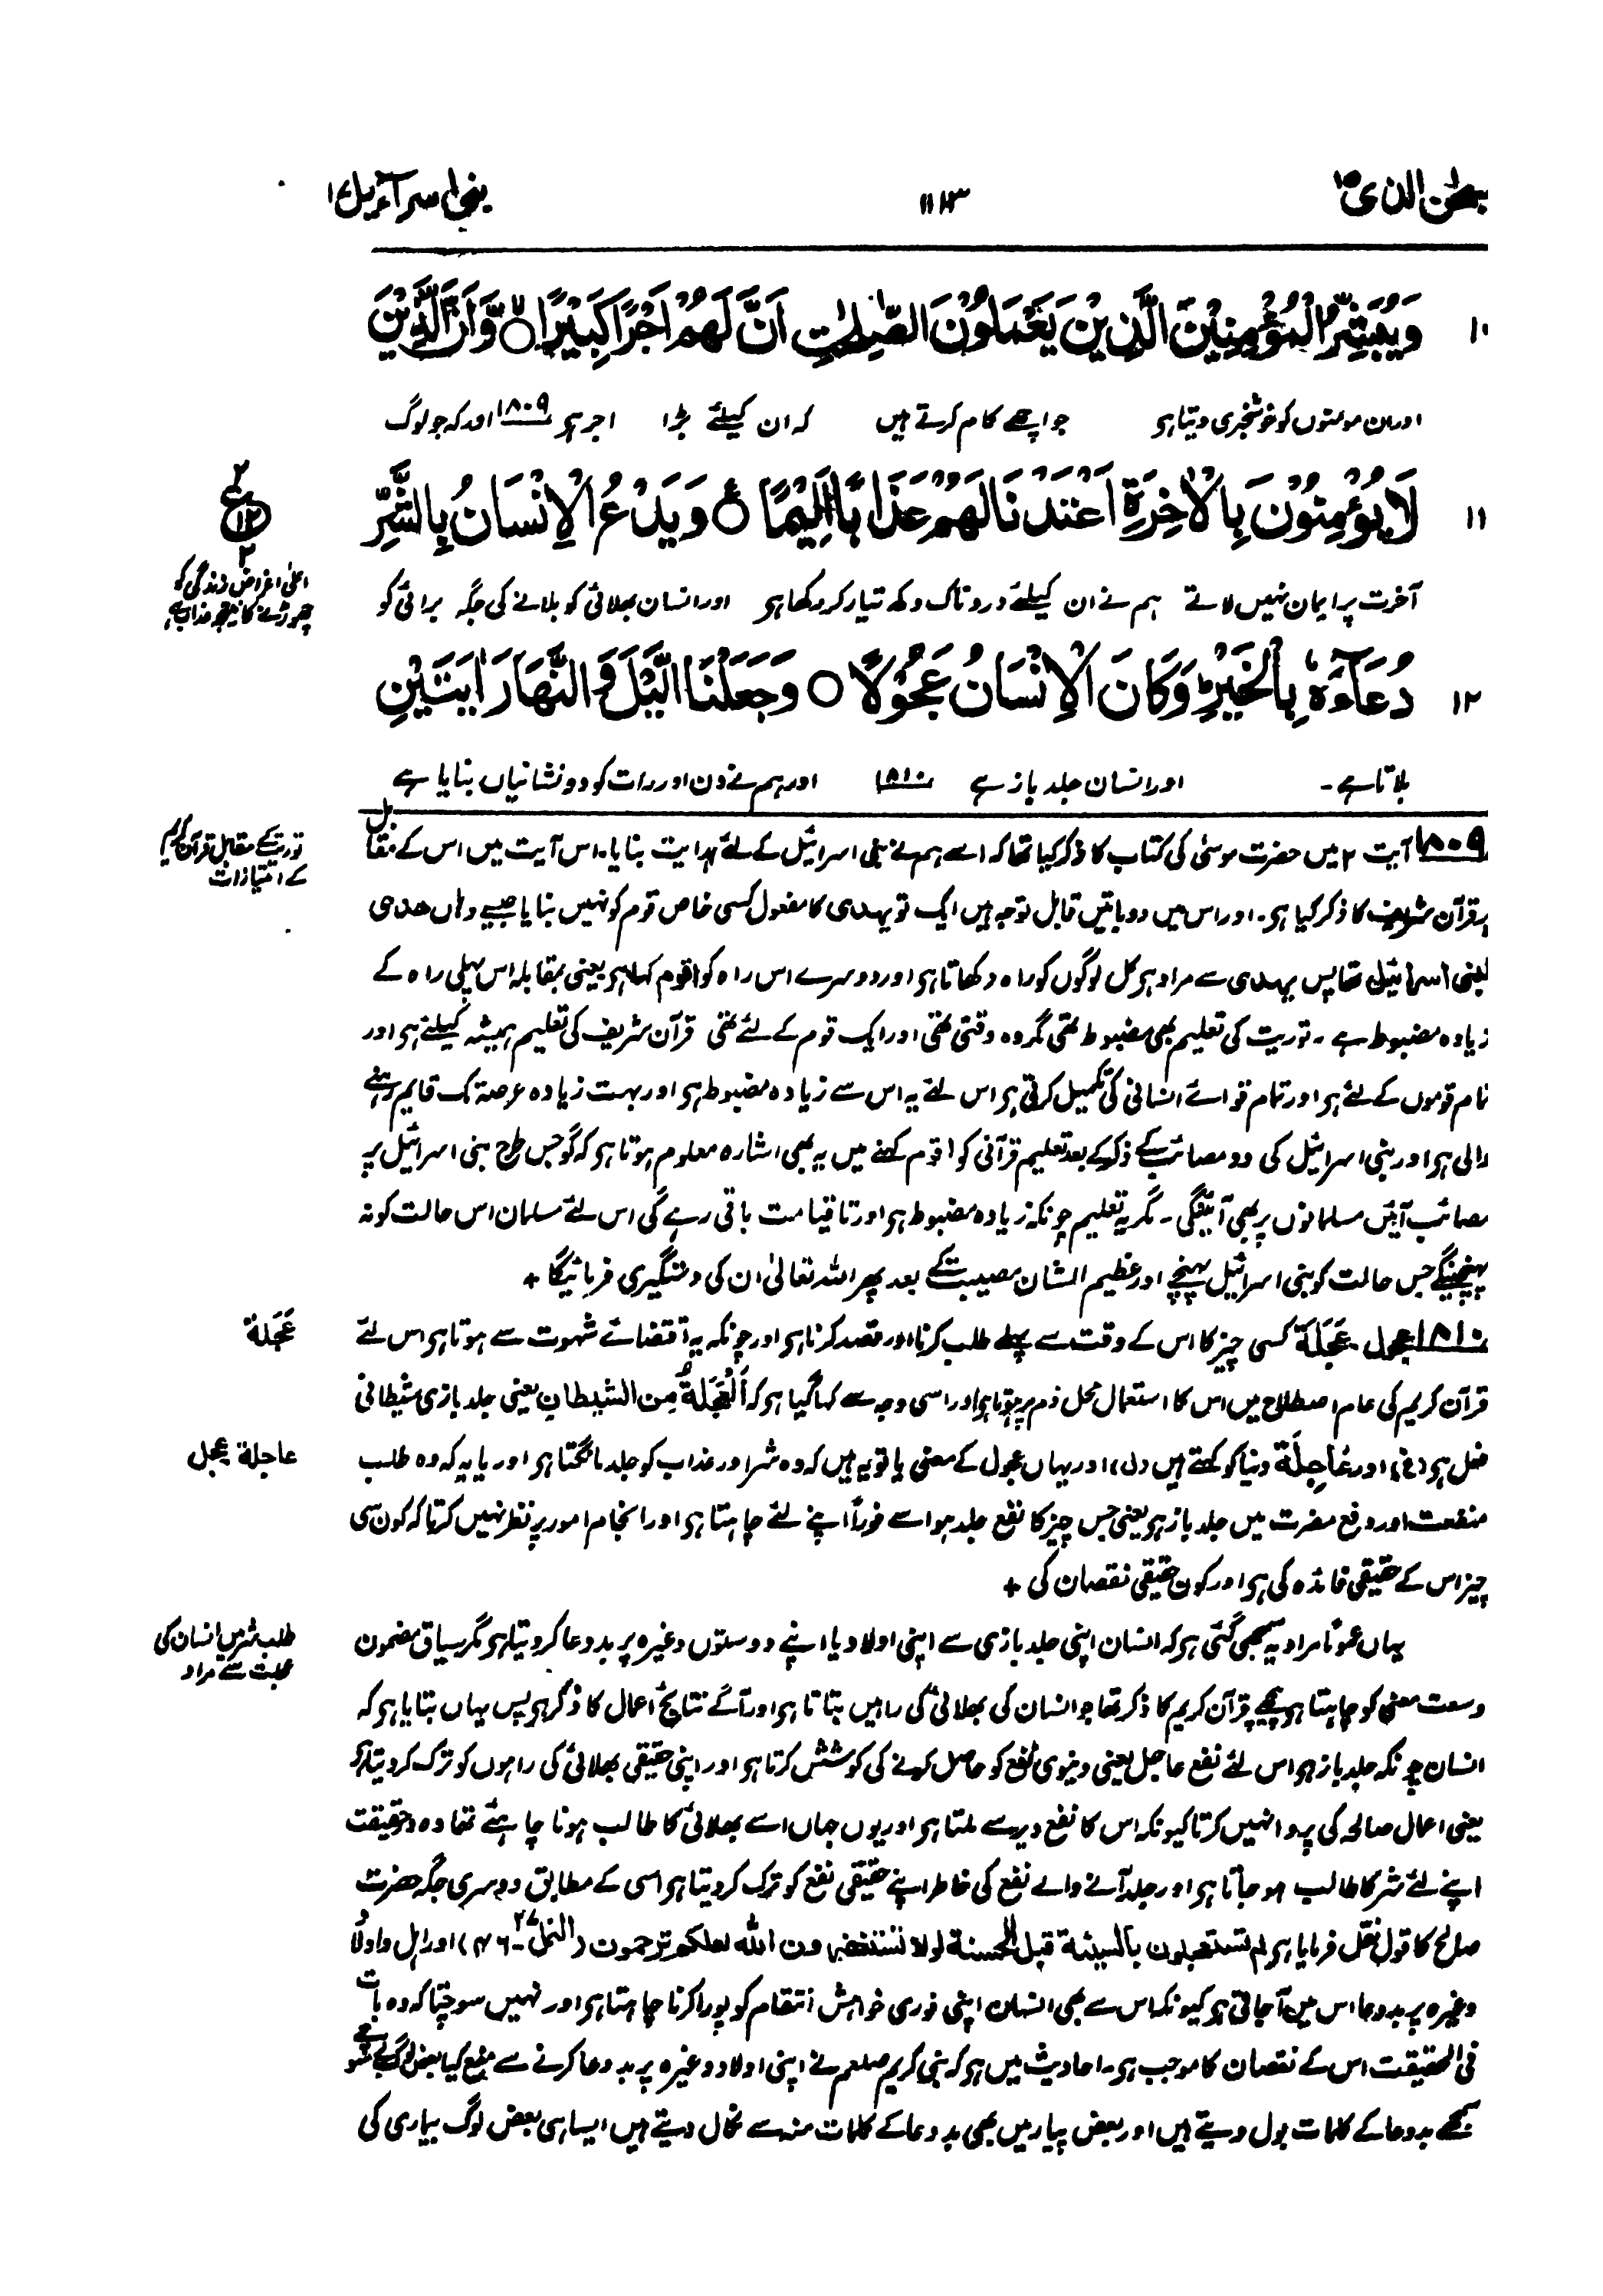 سبحٰن الذی ۱۵
۱۱۱۳
بنی اسرآءیل ۱۷
۱۰ وَيُبَشِّرُ الْمُؤْمِنِيْنَ الَّذِيْنَ يَعْمَلُوْنَ الصّٰلِحٰتِ اَنَّ لَهُمْ اَجْرًا كَبِيْرًا ۙ وَّاَنَّ الَّذِيْنَ
اور ان مومنوں کو خوشخبری دیتا ہو جو اچھے کام کرتے ہیں کہ ان کیلئے بڑا اجر ہو ۱۸۰۹ اور کہ جو لوگ
۱۱ لَا يُؤْمِنُوْنَ بِالْاٰخِرَةِ اَعْتَدْنَا لَهُمْ عَذَابًا اَلِيْمًا ۠ وَيَدْعُ الْاِنْسَانُ بِالشَّرِّ
۲ ع ۱۲ ۲
آخرت پر ایمان نہیں لاتے ہم نے ان کیلئے دردناک دکھ تیار کر رکھا ہو اور انسان بھلائی کو بلانے کی جگہ برائی کو
اعلیٰ اغراض زندگی کو
چھوڑنے کا نتیجہ عذاب ہے
۱۲ دُعَآءَهٗ بِالْخَيْرِ ؕ وَكَانَ الْاِنْسَانُ عَجُوْلًا ۝ وَجَعَلْنَا الَّيْلَ وَالنَّهَارَ اٰيَتَيْنِ
بلاتا ہے۔ اور انسان جلد باز ہے ۱۸۱۰ اور ہم نے دن اور رات کو دو نشانیاں بنایا ہے
توریت کے مقابل قرآن کریم
کے امتیازات
۱۸۰۹ آیت ۲ میں حضرت موسیٰ کی کتاب کا ذکر کیا تھا کہ اسے ہم نے بنی اسرائیل کے لئے ہدایت بنایا۔ اس آیت میں اس کے مقابل
پر قرآن شریف کا ذکر کیا ہو۔ اور اس میں دو باتیں قابل توجہ ہیں ایک تو یھدی کا مفعول کسی خاص قوم کو نہیں بنایا جیسے وہاں ھدی
لبنی اسرائیل تھا پس یھدی سے مراد ہو کل لوگوں کو راہ دکھاتا ہو اور دوسرے اس راہ کو اقوم کہا ہو یعنی بمقابلہ اس پہلی راہ کے
زیادہ مضبوط ہے۔ توریت کی تعلیم بھی مضبوط تھی مگر وہ وقتی تھی اور ایک قوم کے لئے تھی قرآن شریف کی تعلیم ہمیشہ کیلئے ہو اور
تمام قوموں کے لئے ہو اور تمام قوائے انسانی کی تکمیل کرتی ہو اس لئے یہ اس سے زیادہ مضبوط ہو اور بہت زیادہ عرصہ تک قایم رہنے
والی ہو اور بنی اسرائیل کی دو مصائب کے ذکر کے بعد تعلیم قرآنی کو اقوم کہنے میں یہ بھی اشارہ معلوم ہوتا ہو کہ گو جس طرح بنی اسرائیل پر
مصائب آئیں مسلمانوں پر بھی آئینگی۔ مگر یہ تعلیم چونکہ زیادہ مضبوط ہو اور تا قیامت باقی رہے گی اس لئے مسلمان اس حالت کو نہ
پہنچینگے جس حالت کو بنی اسرائیل پہنچے اور عظیم الشان مصیبت کے بعد پھر اللہ تعالیٰ ان کی دستگیری فرمائیگا +
عَجَلة
۱۸۱۰ عجول۔ عَجَلَة کسی چیز کا اس کے وقت سے پہلے طلب کرنا اور قصد کرنا ہو اور چونکہ یہ اقتضائے شہوت سے ہوتا ہو اس لئے
قرآن کریم کی عام اصطلاح میں اس کا استعمال محل ذم پر ہوتا ہو اور اسی وجہ سے کہا گیا ہو کہ اَلْعَجَلَةُ مِن الشیطانِ یعنی جلد بازی شیطانی
عاجلة عجل
فعل ہو (غ)، اور عَاجِلَة دنیا کو کہتے ہیں (ل)، اور یہاں عجول کے معنی یا تو یہ ہیں کہ وہ شر اور عذاب کو جلد مانگتا ہو اور یا یہ کہ وہ طلب
منفعت اور دفع مضرت میں جلد باز ہو یعنی جس چیز کا نفع جلد ہو اسے فوراً اپنے لئے چاہتا ہو اور انجام امور پر نظر نہیں کرتا کہ کون سی
چیز اس کے حقیقی فائدہ کی ہو اور کون حقیقی نقصان کی +
طلب شر میں انسان کی
عجلت سے مراد
یہاں عموماً مراد یہ سمجھی گئی ہو کہ انسان اپنی جلد بازی سے اپنی اولاد یا اپنے دوستوں وغیرہ پر بد دعا کر دیتا ہو مگر سیاق مضمون
وسعت معنی کو چاہتا ہو پیچھے قرآن کریم کا ذکر تھا جو انسان کی بھلائی کی راہیں بتاتا ہو اور آگے نتایج اعمال کا ذکر ہو پس یہاں بتایا ہو کہ
انسان چونکہ جلد باز ہو اس لئے نفع عاجل یعنی دنیوی نفع کو حاصل کرنے کی کوشش کرتا ہو اور اپنی حقیقی بھلائی کی راہوں کو ترک کر دیتا ہو
یعنی اعمال صالحہ کی پروا نہیں کرتا کیونکہ اس کا نفع دیر سے ملتا ہو اور یوں جہاں اسے بھلائی کا طالب ہونا چاہئے تھا وہ درحقیقت
اپنے لئے شر کا طالب ہو جاتا ہو اور جلد آنے والے نفع کی خاطر اپنے حقیقی نفع کو ترک کر دیتا ہو اسی کے مطابق دوسری جگہ حضرت
صالح کا قول نقل فرمایا ہو لم تستعجلون بالسیئة قبل الحسنة لولا تستغفرون اللہ لعلکم ترحمون (النمل ۲۷۔۴۶) اور اہل و اولاد
وغیرہ پر بد دعا اس میں آ جاتی ہو کیونکہ اس سے بھی انسان اپنی فوری خواہش انتقام کو پورا کرنا چاہتا ہو اور نہیں سوچتا کہ وہ بات
فی الحقیقت اس کے نقصان کا موجب ہو۔ احادیث میں ہو کہ نبی کریم صلعم نے اپنی اولاد وغیرہ پر بد دعا کرنے سے منع کیا بعض لوگ بے سوچے
سمجھے بد دعا کے کلمات بول دیتے ہیں اور بعض پیار میں بھی بد دعا کے کلمات منہ سے نکال دیتے ہیں ایسا ہی بعض لوگ بیماری کی